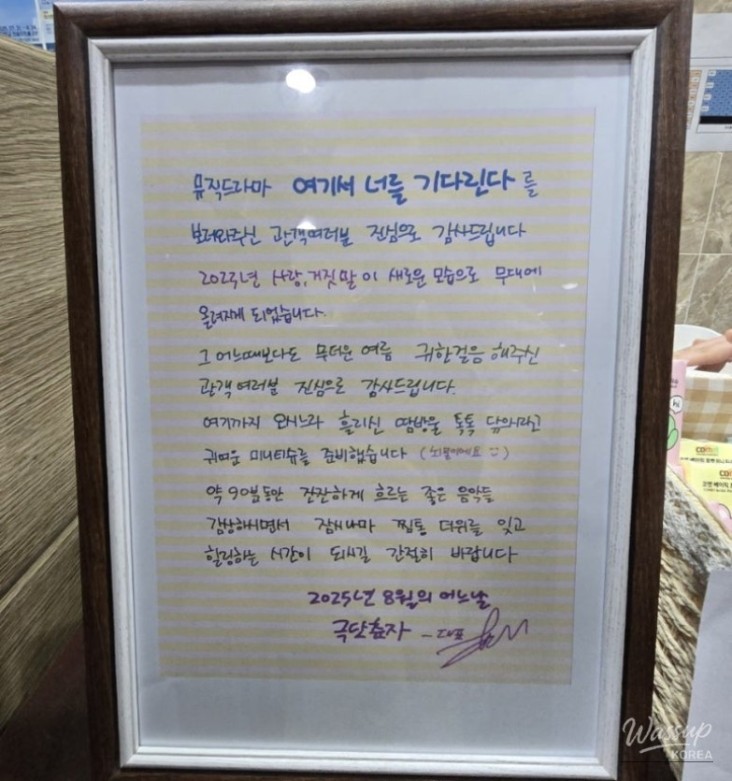 뮤직드라마 여기서 너를 기다린다 를
보러와주신 관객여러분 진심으로 감사드립니다
2025년 사랑,거짓말이 새로운 모습으로 무대에
올려지게 되었습니다.
그 어느때보다도 무더운 여름 귀한걸음 해주신
관객 여러분 진심으로 감사드립니다.
여기까지 오시느라 흘리신 땀방울 톡톡 닦으시라고
귀여운 미니티슈를 준비했습니다
약 90분동안 잔잔하게 흐르는 좋은 음악들
감상하시면서 잠시나마 찜통 더위를 잊고
힐링하는 시간이 되시길 간절히 바랍니다
2025년 8월의 어느날
극단효자 - 대표
Wassup
KOREA